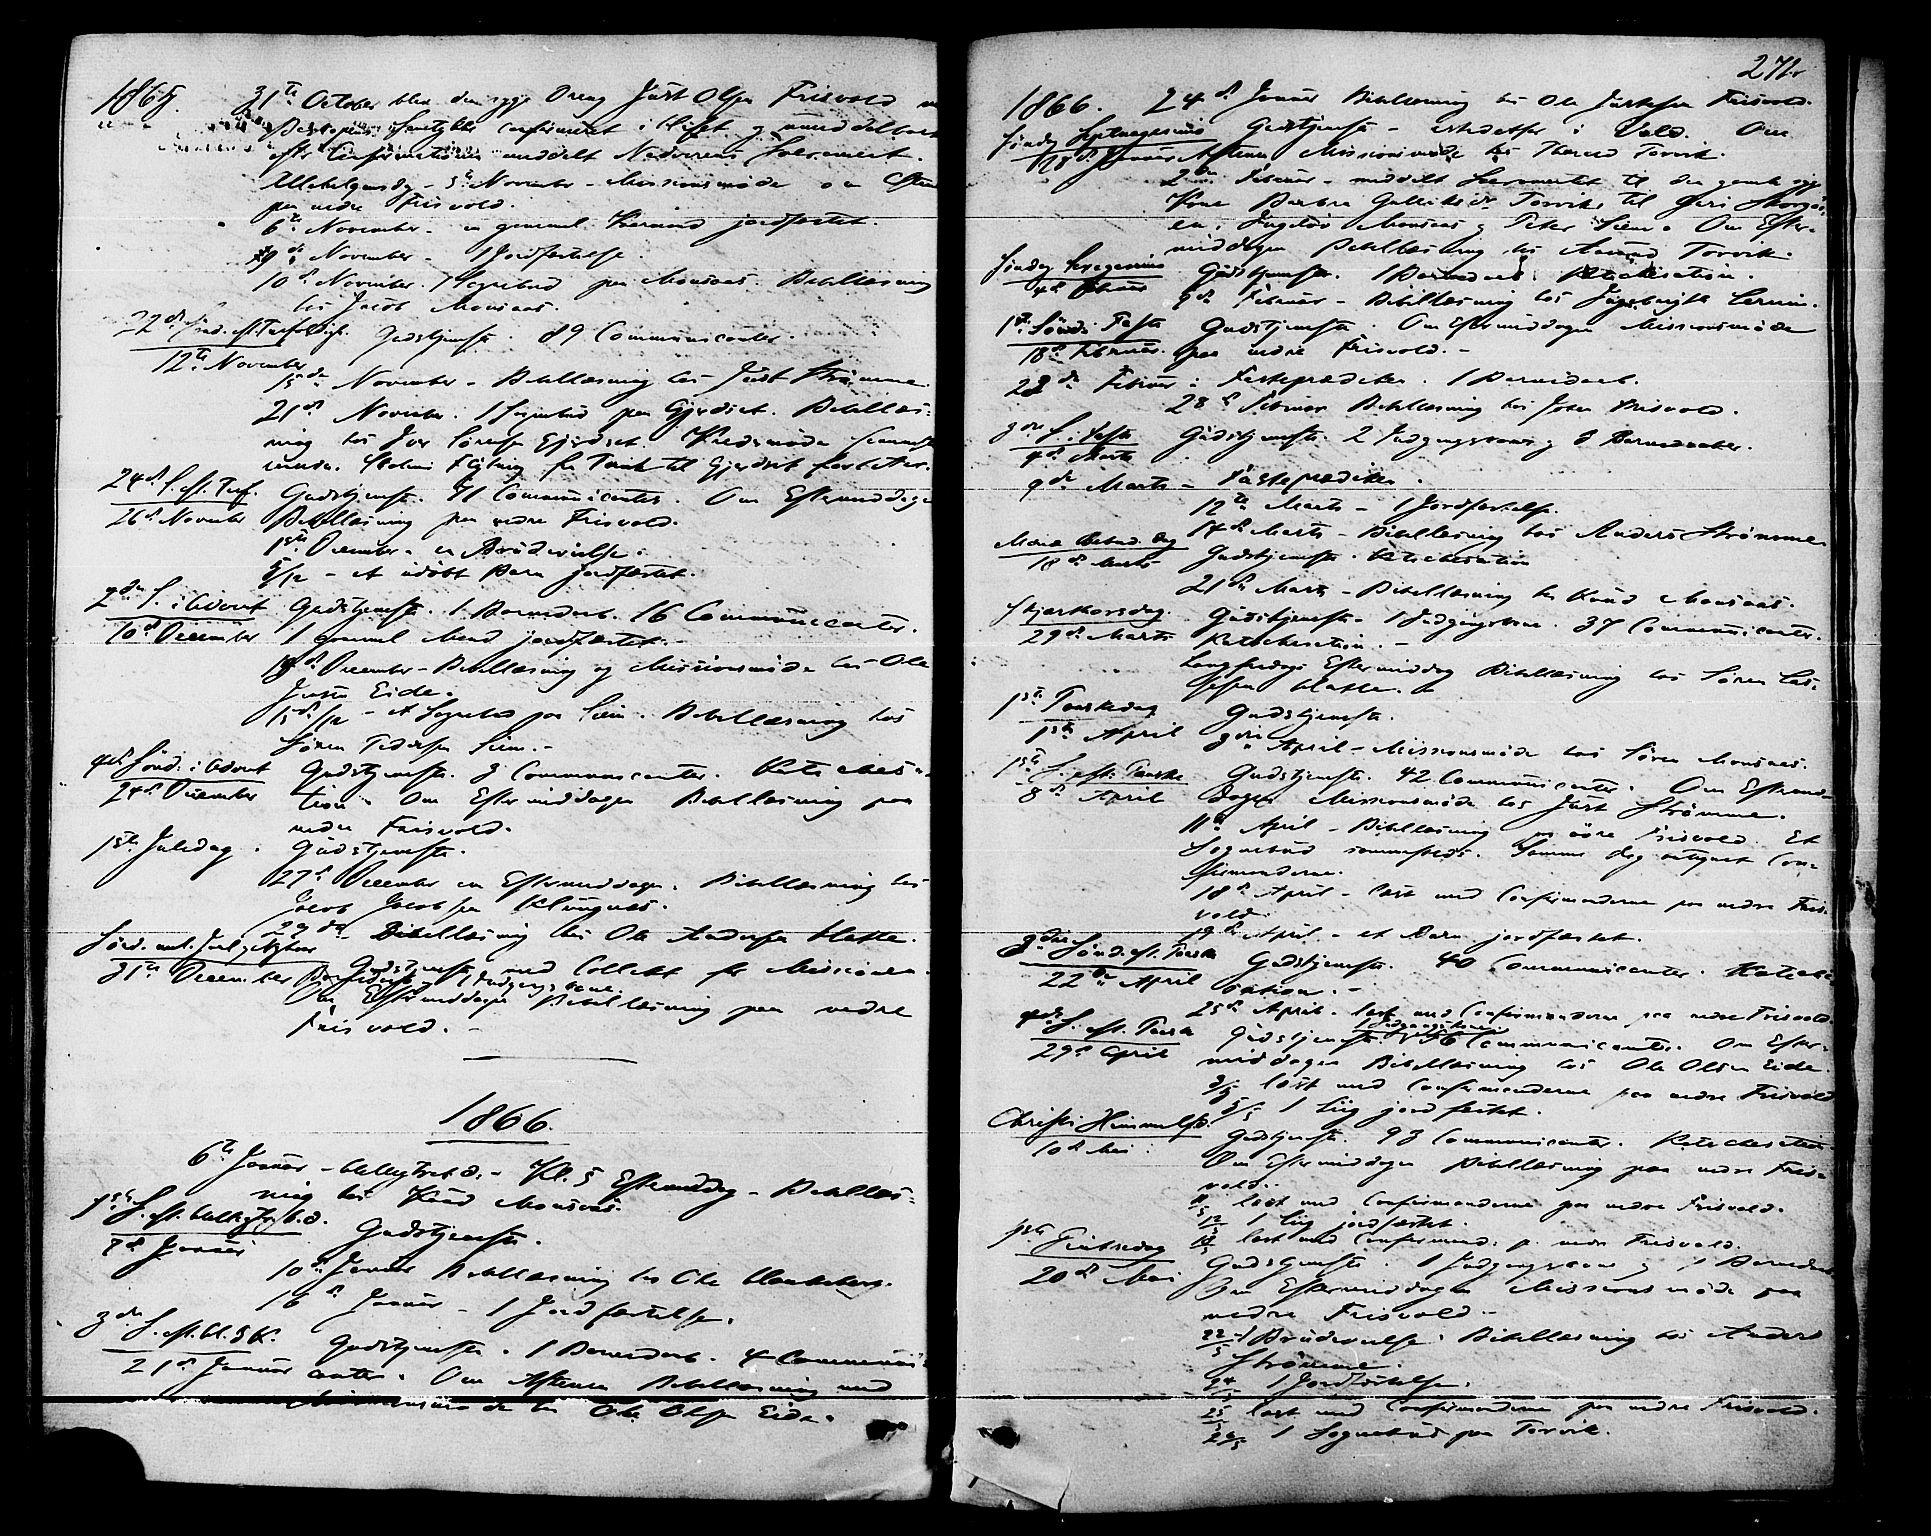 1865. 31te October blev den syge Dreng Just Olsen Frisvold
Samtykke confirmeret i og
efter Confirmationen meddelt Nadverens Sacrament.
Allehelgensdag - 5te November - Missionsmøde om Aften
paa nedre Frisvold.
6te November - en gammel jordfæstet.
November - 1 Jordfæstelse.
10de November 1 Sognebud paa Monsaas. Bibellæsning
hos Jacob Monsaas.
22de Sønd. eft. Trefoldigh. Gudstjeneste. 89 Communicanter.
12te November
15de November - Bibellæsning hos Just Strømme
21de November. 1 Sognebud paa Gjerdset. Bibellæs-
ning hos Iver Sørensen Gjerdset
fra Torvik til Gjerdset
24de S. eft. Tref. Gudstjeneste. 71 Communicanter. Om Eftermiddagen
26de November Bibellæsning paa nedre Frisvold.
1ste December - en Brudevielse.
5/12 - et udøbt Barn jordfæstet.
2den S. i Advent Gudstjeneste. 1 Barnedaab. 16 Communicanter.
10de December 1 gammel Mand jordfæstet.
December - Bibellæsning og Missionsmøde hos Ole
Eide.
15de/12 - et Sognebud paa Siem. Bibellæsning hos
Søren Pedersen Siem.
4de Sønd. i Advent Gudstjeneste. 3 Communicanter. Kateches-
24de December tion. Om Eftermiddagen Bibellæsning paa
nedre Frisvold.
1ste Juledag. Gudstjeneste.
27de December om Eftermiddagen. Bibellæsning hos
Jacob Jacobsen Klungnæs.
29de Bibellæsning hos Ole Andersen
Sønd. ml. Jul og Nytaar Gudstjeneste med Collekt for Missionen.
31te December Barnedaab. 1 Indgangskone.
Om Eftermiddagen Bibellæsning paa nedre
Frisvold.
1866.
6te Januar - - Kl. 5 Eftermiddag - Bibellæs-
ning hos Knud Monsaas.
1ste S. eft. Gudstjeneste.
7de Januar
10de Januar Bibellæsning hos Ole
16de Januar - 1 Jordfæstelse.
3die S. eft. H. 3 K. Gudstjeneste. 1 Barnedaab. 4 Communi-
21de Januar canter. Om Aftenen Bibellæsning med
Missionsmøde hos Ole Olsen Eide.
271
1866. 24de Januar Bibellæsning hos Ole Justesen Frisvold.
Søndag Septuagesima Gudstjeneste - istedetfor i Vold. Om
28de Januar Aftenen Missionsmøde hos Torvik.
2den Februar - meddelt Sacramentet til den gamle syge
Kone Barbra Torvik, til
Monsaas og Peter Siem. Om Efter-
middagen Bibellæsning hos Torvik.
Søndag Sexagesima Gudstjeneste. 1 Barnedaab. Katechisation.
4de Februar
9de Februar - Bibellæsning hos
1ste Sønd. i Faste Gudstjeneste. Om Eftermiddagen Missionsmøde
18de Februar. paa nedre Frisvold. -
Februar: Fasteprædiken. 1 Barnedaab.
28de Februar Bibellæsning hos Johan Frisvold.
3die S. i Faste Gudstjeneste. 2 Indgangskoner og 3 Barnedaaber.
4de Marts
9de Marts - Fasteprædiken.
12te Marts - 1 Jordfæstelse.
14de Marts - Bibellæsning hos Anders Strømme
Mariæ Bebud. Dag Gudstjeneste. Katechesation
18de Marts
21de Marts - Bibellæsning hos Knud Monsaas.
Skjærtorsdag. Gudstjeneste. 1 Indgangskone. 37 Communicanter.
29de Marts Katechesation. -
Langfredags Eftermiddag Bibellæsning hos Søren Las-
sesen
1ste Paaskedag Gudstjeneste.
1ste April 3die April - Missionsmøde hos Søren Monsaas.
1ste S. eft. Paaske Gudstjeneste. 42 Communicanter. Om Eftermid-
8de April dagen Missionsmøde hos Just Strømme.
11te April - Bibellæsning paa øvre Frisvold. Et
Sognebud sammesteds. Samme Dag Con-
firmanderne.
18de April - læst med Confirmanderne paa nedre Fris-
vold.
19de April - et Barn jordfæstet.
3die Sønd. eft. Paaske Gudstjeneste. 40 Communicanter. Kateche-
22de April sation. -
25de April. læst med Confirmanderne paa nedre Frisvold.
4de S. eft. Paaske Gudstjeneste. 1 Indgangskone. 56 Communicanter. Om Efter-
29de April middagen Bibellæsning hos Ole Olsen Eide.
3/5 læst med Confirmanderne paa nedre Frisvold
5/5 1 Liig jordfæstet.
Christi Himmelfd. Gudstjeneste. 93 Communicanter. Katechesation
10de Mai. Om Eftermiddagen Bibellæsning paa nedre Fris-
vold.
11/5 læst med Confirmanderne paa nedre Frisvold.
12/5 1 Liig jordfæstet.
læst med Confirmand. p. nedre Frisvold.
1ste Pintsedag Gudstjeneste. 1 Indgangskone og 1 Barnedaab
20de Mai Om Eftermiddagen Missionsmøde paa
nedre Frisvold.
22/5 1 Brudevielse. Bibellæsning hos Anders
Strømme.
24/5 1 Jordfæstelse.
25/5 læst med Confirmanderne paa nedre Frisvold.
26/5 1 Sognebud paa Torvik.